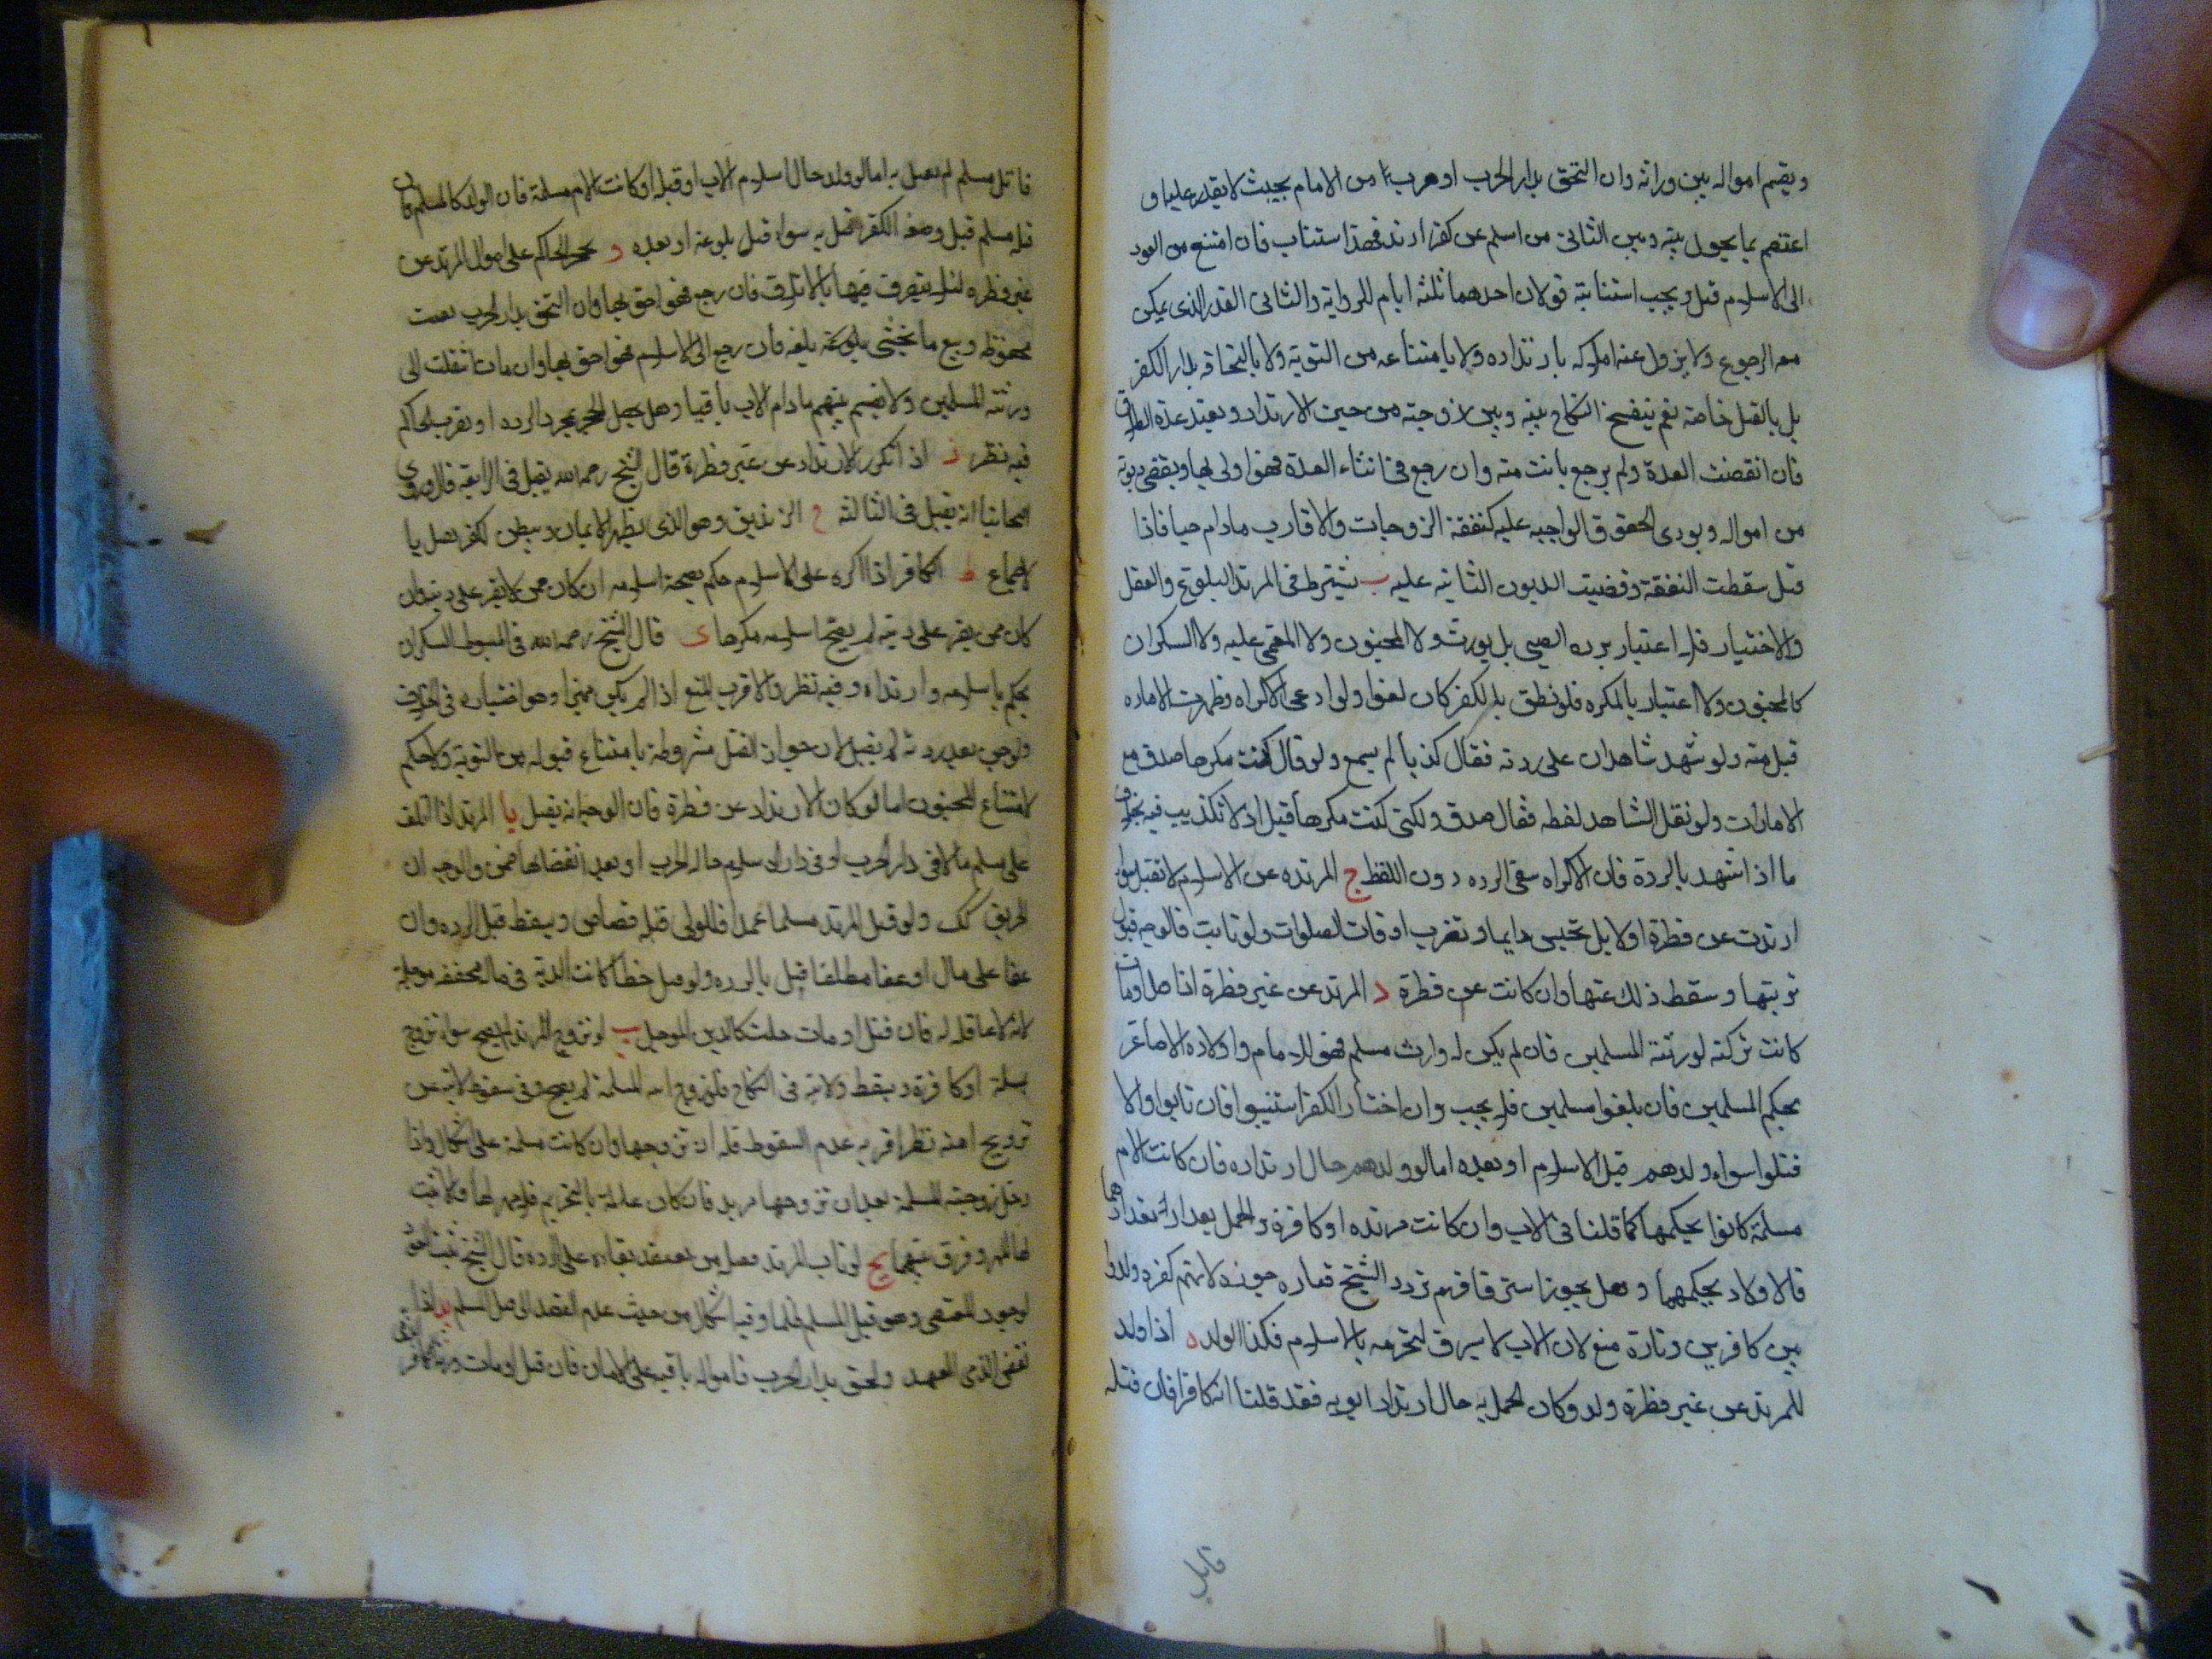 ويقسم امواله بين وراثه وان التحق بدار الحرب او هرب من الامام بحيث لا يقدر عليه او
اعتصم بما يحول بينه وبين الثانى من اسلم عن كفر ارتد فهذا استتاب فان امتنع من العود
الى الاسلام قتل ويجب استتابته قولان احدهما ثلثه ايام للروايه والثانى القدر الذى يمكن
معه الرجوع ولا يزول عنه املاكه بارتداده ولا بامتناعه من التوبه ولا بالتحاقه بدار الكفر
بل بالقتل خاصة نعم ينفسخ النكاح بينه وبين زوجته من حين الارتداد وتعتد عدة الطلاق
فان انقضت العدة ولم يرجع بانت منه وان رجع فى اثناء العدة فهو اولى بها ويقضى ديونه
من امواله ويودى الحقوق الواجبه عليه كنفقة الزوجات والاقارب مادام حيا فاذا
قتل سقطت النفقة وقضيت الديون الثابته عليه ب يشترط فى المرتد البلوغ والعقل
والاختيار فلا اعتبار برده الصبى بل يورث ولا المجنون ولا المغمى عليه ولا السكران
كالمجنون ولا اعتبار بالمكره فلو نطق بالكفر كان لغوا ولو ادعى الاكراه وظهرت الاماره
قبل منه ولو شهد شاهدان على ردته فقال كذبا لم يسمع ولو قال كنت مكرها صدق مع
الامارات ولو نقل الشاهد لفظه فقال صدق ولكنى كنت مكرها قبل اذ لا تكذيب فيه بخلاف
ما اذا شهد بالردة فان الاكراه ينفى الرده دون اللفظ ج المرتده عن الاسلام لا تقتل سواء
ارتدت عن فطرة اولا بل تحبس دايما وتضرب اوقات الصلوات ولو تابت فالوجه قبول
توبتها وسقط ذلك عنها وان كانت عن فطرة د المرتد عن غير فطرة اذا ومات
كانت تركته لورثته المسلمين فان لم يكن له وارث مسلم فهو للامام واولاده الاصاغر
بحكم المسلمين فان بلغوا مسلمين فلا يجب وان اختاروا الكفر استتيبوا فان تابوا والا
قتلوا سواء ولدهم قبل الاسلام او بعده اما لو ولدهم حال ارتداده فان كانت الام
مسلمة كانوا بحكمها كما قلنا فى الاب وان كانت مرتده او كافرة والحمل بعد ارتدادهما
فالاولاد بحكمهما وهل يجوز استرقاقهم تردد الشيخ فتاره جوزه لانهم كفره ولدوا
بين كافرين وتارة منع لان الاب لا يسترق لتحرمه بالاسلام فكذا الولد ه اذا ولد
للمرتد عن غير فطرة ولد وكان الحمل به حال ارتداد ابويه فقد قلنا انه كافر فان قتله
قاتل
قاتل مسلم لم يقتل به اما لو ولد حال اسلام الاب او قبله او كانت الام مسلمة فان الولد كالمسلم فان
قتله مسلم قبل وصفه الكفر قتل به سواء قبل بلوغه او بعده و يحجر الحاكم على اموال المرتد عن
غير فطره لئلا يتصرف فيها بالاتلاف فان رجع فهو احق بها وان التحق بدار الحرب
يحفظ وبيع ما يخشى فان رجع الى الاسلام فهو احق بها وان مات انتقلت الى
ورثته المسلمين ولا يقسم بينهم مادام الاب باقيا وهل يحصل الحجر بمجرد الرده او بضرب الحاكم
فيه نظر ز اذا تكرر الارتداد عن غير فطرة قال الشيخ رحمه الله يقتل فى الرابعه قال وروى
اصحابنا انه يقتل فى الثالثه ح الزنديق وهو الذى يظهر الايمان ويبطن الكفر يقتل با
لاجماع ط الكافر اذا اكره على الاسلام حكم بصحة اسلامه ان كان ممن لا يقر على دينه وان
كان ممن يقر على دينه لم يصح اسلامه مكرها ى قال الشيخ رحمه الله فى المبسوط السكران
يحكم باسلامه وارتداده وفيه نظر والاقرب المنع اذا لم يكن مميزا وهو اختياره فى الخلاف
ولو جن بعد ردته لم يقتل لان جواز القتل مشروطة بامتناع قبوله من التوبه ولا حكم
لامتناع المجنون اما لو كان الارتداد عن فطرة فان الوجه انه يقتل يا المرتد اذا اتلف
على مسلم مالا فى دار الحرب او فى دار الاسلام حاله الحرب او بعد انقضائها ضمن والوجه ان
الحربى كك ولو قتل المرتد مسلما عمدا فللولى قتله قصاص ويسقط قتل الرده وان
عفا على مال او عفا مطلقا قتل بالرده ولو قتل خطأ كانت الدية فى ماله مخففه موجلة
لانه لا عاقله له فان قتل او مات حلت كالدين الموجل يب لو تزوج المرتد لم يصح سواء تزوج
بمسلمة او كافرة ويسقط ولايته فى النكاح فلو زوج ابنته المسلمة لم يصح وفى سقوط ولايته عن
تزويج امته نظر اقربه عدم السقوط فله ان يزوجها وان كانت مسلمة على اشكال واذا
زوجته المسلمة بعد ان تزوجها مرتد فان كان عالمة بالتحريم فلا مهر لها والا ثبت
لها المهر وفرق بينهما يج لو تاب المرتد فقتله من يعتقد بقاءه على الرده قال الشيخ يثبت القود
لوجود المقتضى وهو قتل المسلم ظلما وفيه اشكال من حيث عدم القصد الى قتل المسلم يد اذا
نقض الذمى العهد ولحق بدار الحرب فامواله باقيه على الامان فان قتل او مات ورثه